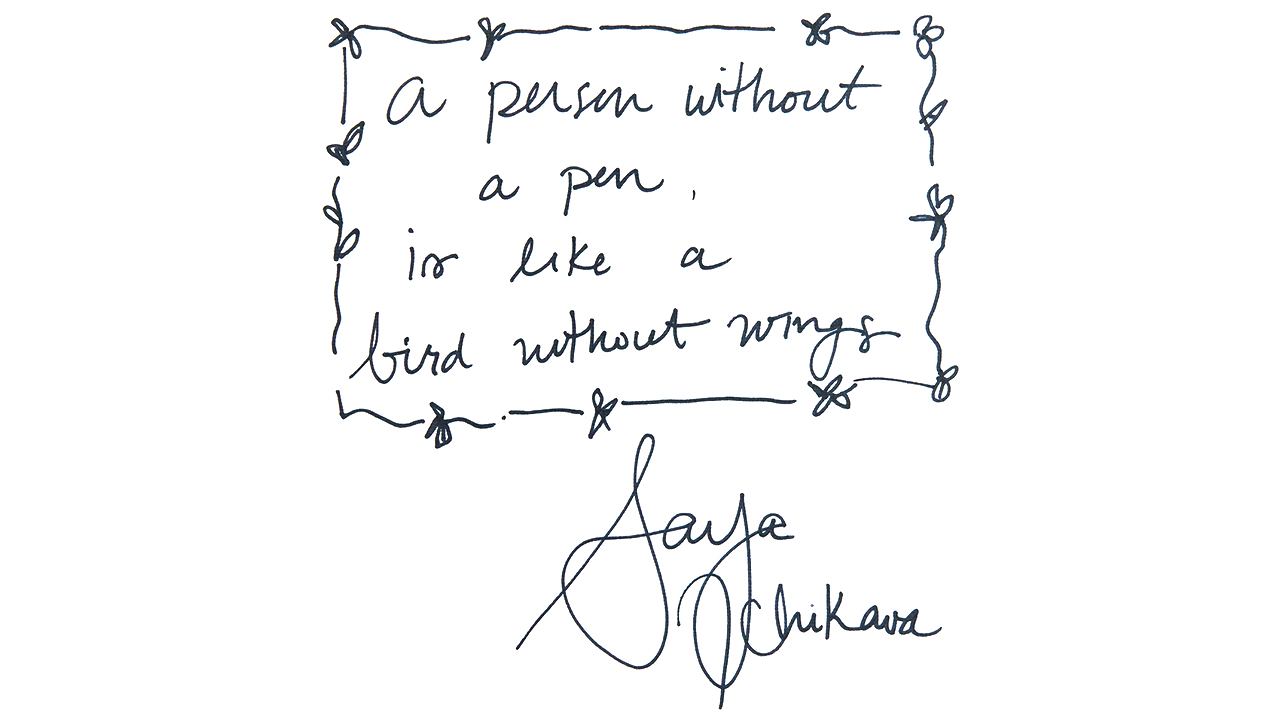 a person without
a pen,
is like a
bird without wings
Saya
Ichikawa